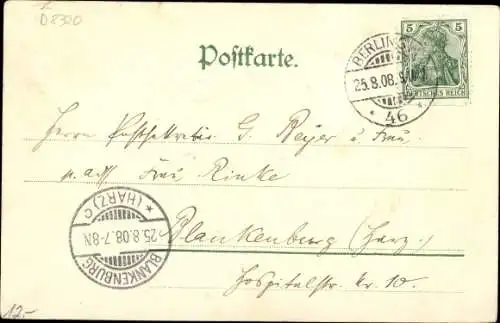 D2320
Postkarte.
5 5
DEUTSCHES REICH
BERLIN
25.8.08.
* 46 *
Herrn Postsekretär G. Meyer u. Frau
Frau Rinke
Blankenburg (Harz.)
Hospitalstr. Nr. 10.
* (HARZ) c
25.8.08.7-8N
BLANKENBURG
12.-